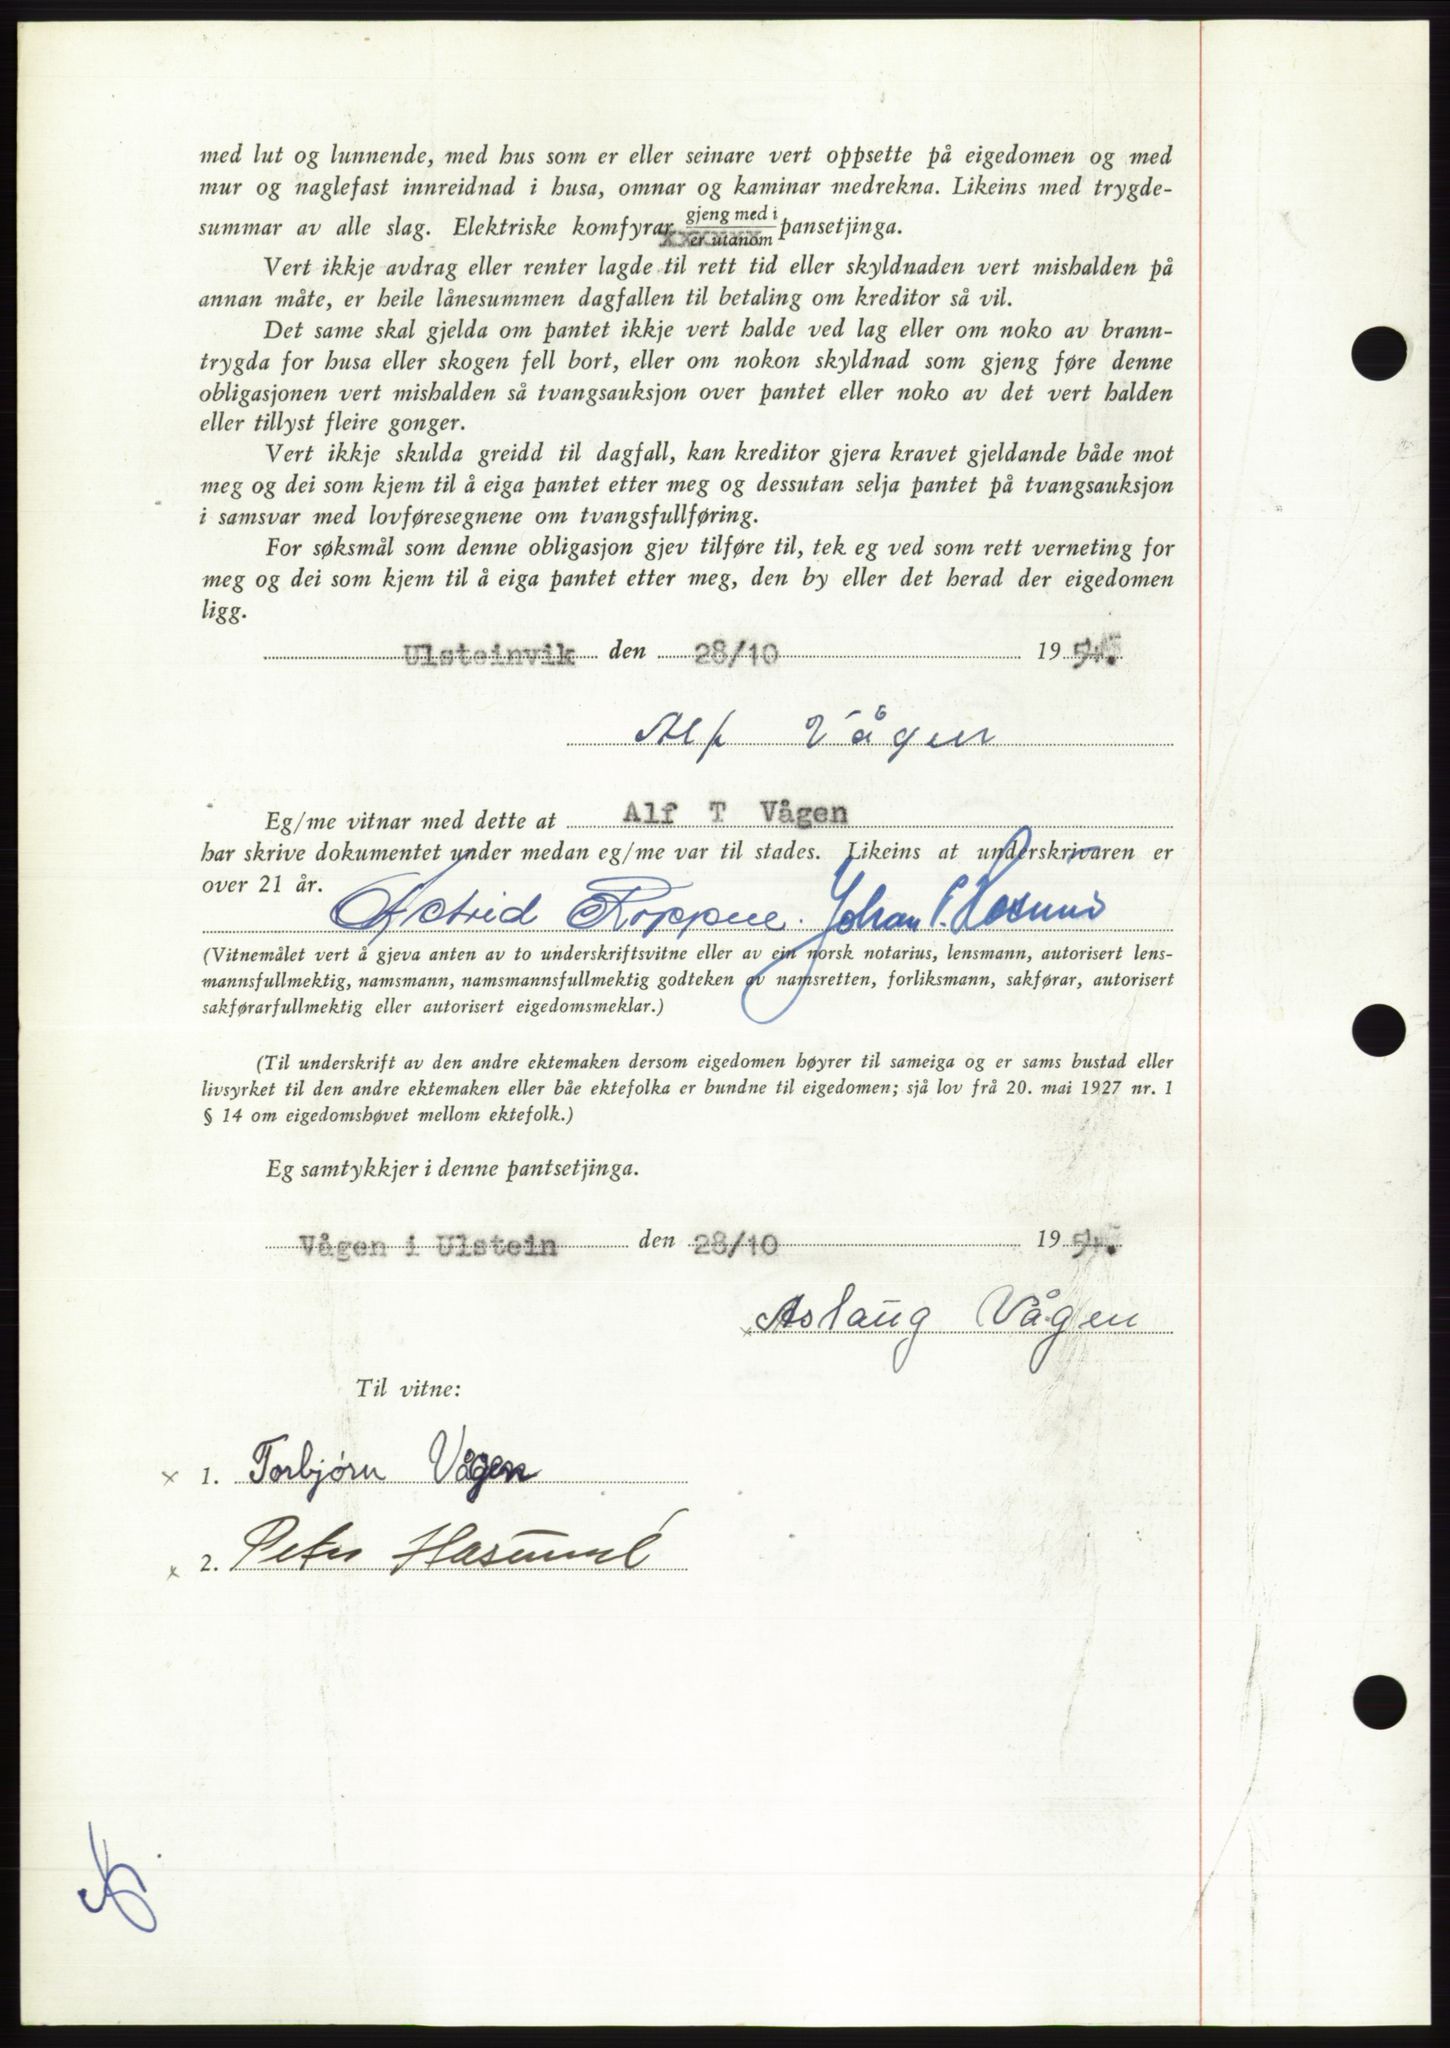 med lut og lunnende, med hus som er eller seinare vert oppsette på eigedomen og med
mur og naglefast innreidnad i husa, omnar og kaminar medrekna. Likeins med trygde-
summar av alle slag. Elektriske komfyrar gjeng med i / er utanom pansetjinga.
Vert ikkje avdrag eller renter lagde til rett tid eller skyldnaden vert mishalden på
annan måte, er heile lånesummen dagfallen til betaling om kreditor så vil.
Det same skal gjelda om pantet ikkje vert halde ved lag eller om noko av brann-
trygda for husa eller skogen fell bort, eller om nokon skyldnad som gjeng føre denne
obligasjonen vert mishalden så tvangsauksjon over pantet eller noko av det vert halden
eller tillyst fleire gonger.
Vert ikkje skulda greidd til dagfall, kan kreditor gjera kravet gjeldande både mot
meg og dei som kjem til å eiga pantet etter meg og dessutan selja pantet på tvangsauksjon
i samsvar med lovføresegnene om tvangsfullføring.
For søksmål som denne obligasjon gjev tilføre til, tek eg ved som rett verneting for
meg og dei som kjem til å eiga pantet etter meg, den by eller det herad der eigedomen
ligg.
Ulsteinvik den 28/10 19
Alf Vågen
Eg/me vitnar med dette at Alf T Vågen
har skrive dokumentet under medan eg/me var til stades. Likeins at underskrivaren er
over 21 år.
Astrid Roppen. Johan P. Hasund
(Vitnemålet vert å gjeva anten av to underskriftsvitne eller av ein norsk notarius, lensmann, autorisert lens-
mannsfullmektig, namsmann, namsmannsfullmektig godteken av namsretten, forliksmann, sakførar, autorisert
sakførarfullmektig eller autorisert eigedomsmeklar.)
(Til underskrift av den andre ektemaken dersom eigedomen høyrer til sameiga og er sams bustad eller
livsyrket til den andre ektemaken eller båe ektefolka er bundne til eigedomen; sjå lov frå 20. mai 1927 nr. 1
§ 14 om eigedomshøvet mellom ektefolk.)
Eg samtykkjer i denne pantsetjinga.
Vågen i Ulstein den 28/10 19
x Aslaug Vågen
Til vitne:
x 1. Torbjørn Vågen
x 2. Peter Hasund